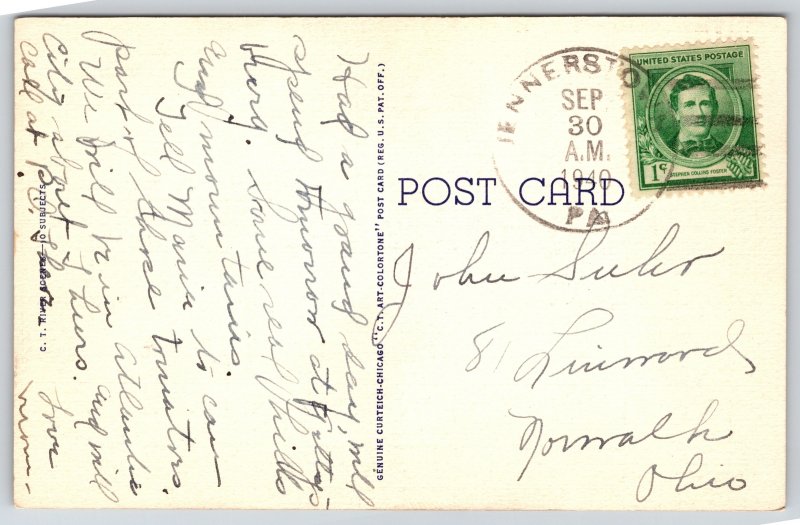 Had a grand day, will
spend tomorrow at Gettys-
burg. Some real hills
and mountains.
Tell Marie to can
part of those tomatoes.
We will be in Atlantic
City about Thurs. and will
call at
Love
C. T. RIVER SCENES 10 SUBJECTS
GENUINE CURTEICH-CHICAGO "C. T. ART-COLORTONE" POST CARD (REG. U. S. PAT. OFF.)
POST CARD
JENNERSTO
SEP
30
A.M.
1940
PA
UNITED STATES POSTAGE
1¢
STEPHEN COLLINS FOSTER
John Suhr
81 Linwood
Norwalk
Ohio